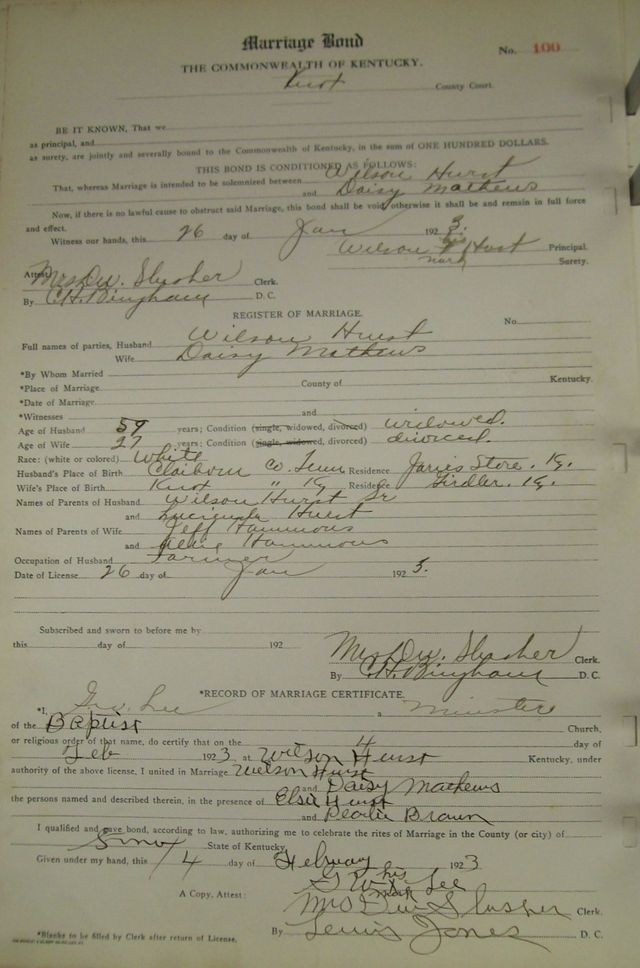 Marriage Bond
No. 100
THE COMMONWEALTH OF KENTUCKY.
Knox County Court.
BE IT KNOWN, That we
as principal, and
as surety, are jointly and severally bound to the Commonwealth of Kentucky, in the sum of ONE HUNDRED DOLLARS.
THIS BOND IS CONDITIONED AS FOLLOWS:
That, whereas Marriage is intended to be solemnized between Wilson Hurst
and Daisy Mathews
Now, if there is no lawful cause to obstruct said Marriage, this bond shall be void, otherwise it shall be and remain in full force
and effect.
Witness our hands, this 26 day of Jan 1923.
Wilson his Hurst Principal.
mark Surety.
Attest: Mrs Dw. Slusher Clerk.
By C.H. Bingham D. C.
REGISTER OF MARRIAGE.
No.
Full names of parties, Husband Wilson Hurst
Wife Daisy Mathews
*By Whom Married
*Place of Marriage County of Kentucky.
*Date of Marriage
*Witnesses and
Age of Husband 59 years; Condition (single, widowed, divorced) widowed.
Age of Wife 27 years; Condition (single, widowed, divorced) divorced.
Race: (white or colored) White
Husband's Place of Birth Claiborn Co. Tenn Residence Jarvis Store. Ky.
Wife's Place of Birth Knox " Ky Residence Girdler. Ky.
Names of Parents of Husband Wilson Hurst Sr
and Lucinda Hurst
Names of Parents of Wife Jeff Hammons
and Hammons
Occupation of Husband Farmer
Date of License 26 day of Jan 1923.
Subscribed and sworn to before me by
this day of 192
Mrs Dw. Slusher Clerk.
By C.H. Bingham D. C.
*RECORD OF MARRIAGE CERTIFICATE.
*I, Geo. Lee a Minister
of the Baptist Church,
or religious order of that name, do certify that on the 4 day of
Feb 1923 at Wilson Hurst Kentucky, under
authority of the above license, I united in Marriage Wilson Hurst
and Daisy Mathews
the persons named and described therein, in the presence of Elsie Hurst
and Pearlie Brown
I qualified and gave bond, according to law, authorizing me to celebrate the rites of Marriage in the County (or city) of
Knox State of Kentucky.
Given under my hand, this 4 day of Febuary 1923
G W his Lee
mark
A Copy, Attest: Mrs Dw Slusher Clerk.
By Lewis Jones D. C.
*Blanks to be filled by Clerk after return of License.